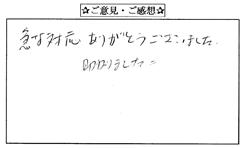 ☆ご意見・ご感想☆
急な対応 ありがとうございました.
助かりました=